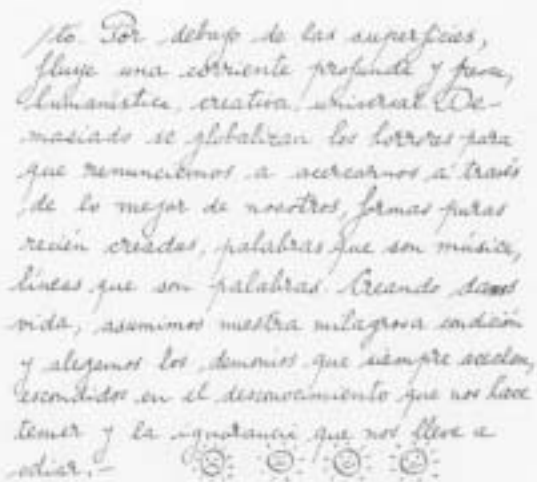 /to. Por debajo de las superficies,
fluye una corriente profunda y fresca,
humanística, creativa, universal. De-
masiado se globalizan los horrores para
que renunciemos a acercarnos a través
de lo mejor de nosotros, formas puras
recién creadas, palabras que son música,
líneas que son palabras. Creando damos
vida, asumimos nuestra milagrosa condición
y alejamos los demonios que siempre acechan,
escondidos en el desconocimiento que nos hace
temer y la ignorancia que nos lleva a
odiar.-